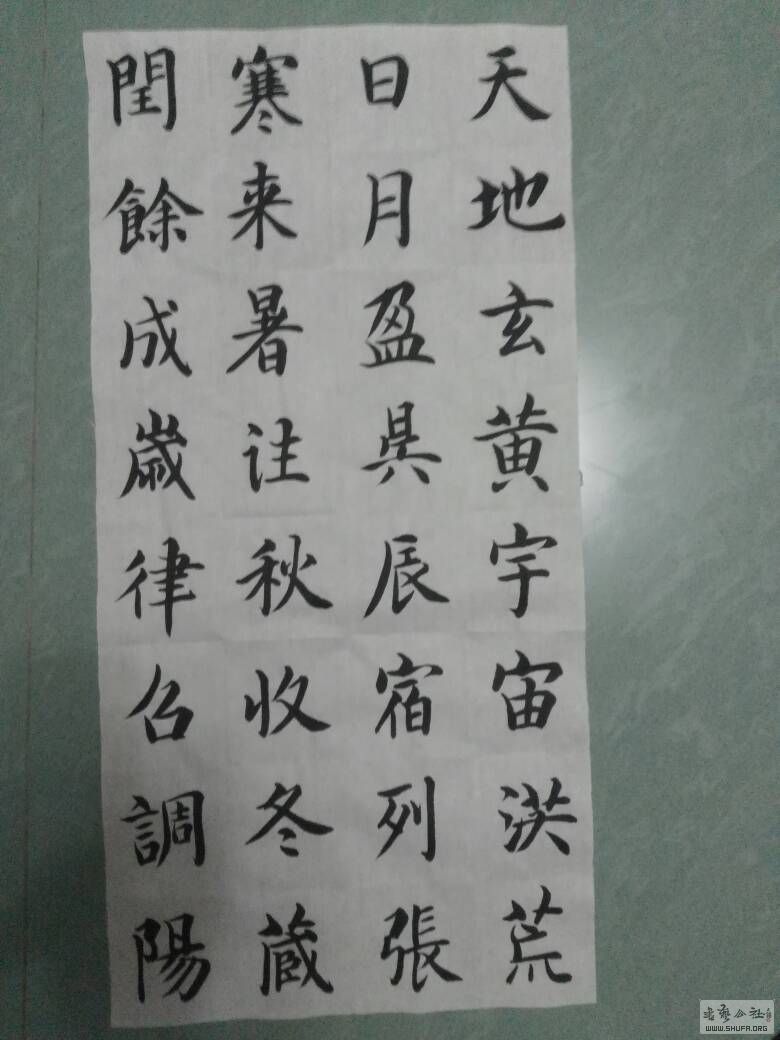 天地玄黄宇宙洪荒
日月盈昃辰宿列張
寒来暑往秋收冬蔵
閏餘成歳律召調陽
书艺公社
WWW.SHUFA.ORG